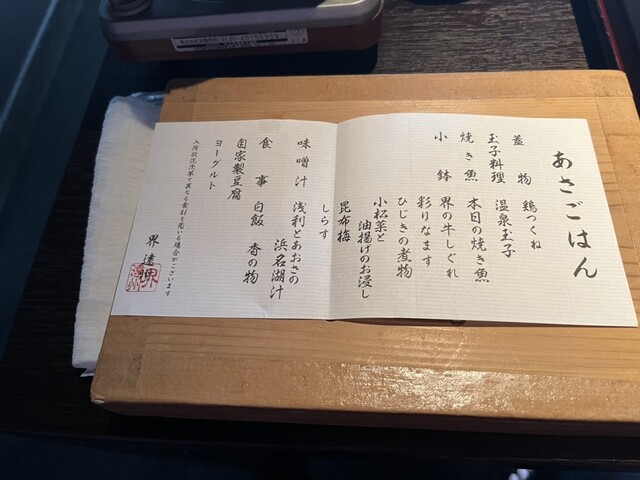 あさごはん
蓋物 鶏つくね
玉子料理 温泉玉子
焼き魚 本日の焼き魚
小鉢 界の牛しぐれ
彩りなます
ひじきの煮物
小松菜と
油揚げのお浸し
昆布梅
しらす
味噌汁 浅利とあおさの
浜名湖汁
食事 白飯 香の物
自家製豆腐
ヨーグルト
入荷状況次第で異なる食材を用いる場合がございます
界 遠州